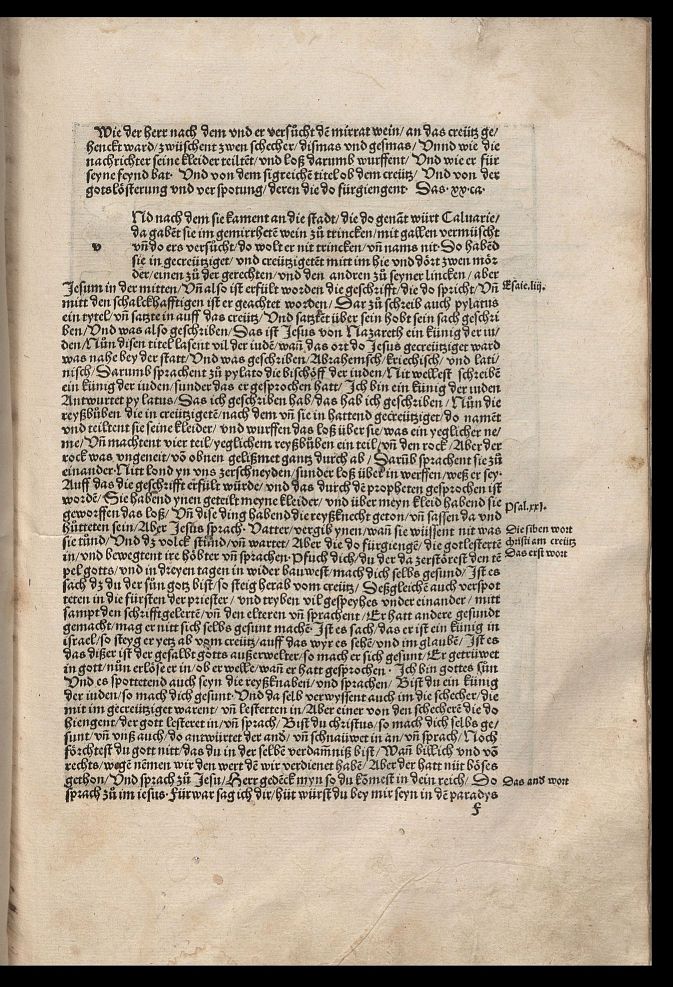 Wie der herr nach dem vnd er versůcht dē mirrat wein/ an das creütz ge/
henckt ward/ zwüschent zwen schecher/ dismas vnd gesmas/ Vnnd wie die
nachrichter seine kleider teiltēt/ vnd loß darumb wurffent/ Vnd wie er für
seyne feynd bat· Vnd von dem sigreichē titel ob dem creütz/ Vnd von der
gotslösterung vnd verspotung/ deren die do fürgiengent· Das·xx·ca·
Nd nach dem sie kament an die stadt/ die do genāt würt Caluarie/
da gabēt sie im gemirrhetē wein zů trincken/ mit gallen vermüscht
v
vñ do ers versůcht/ do wolt er nit trincken/ vñ nams nit· So habēd
sie in gecreütziget/ vnd creützigetēt mitt im hie vnd dört zwen mör
der/ einen zů der gerechten/ vnd den andren zů seyner lincken/ aber
Jesum in der mitten/ Vñ also ist erfült worden die geschrifft/ die do spricht/ Vñ
Esaie.liij.
mitt den schalckhafftigen ist er geachtet worden/ Dar zů schreib auch pylatus
ein tytel/ vñ satzte in auff das creütz/ Vnd satzkēt über sein hobt sein sach geschri
ben/ Vnd was also geschriben/ Das ist Jesus von Nazareth ein künig der iu/
den/ Nůn disen titel lasent vil der iudē/ wañ das ort do Jesus gecreütziger ward
was nahe bey der statt/ Vnd was geschriben/ Abrahemsch/ kriechisch/ vnd lati/
nisch/ Darumb sprachent zů pylato die bischöff der iuden/ Nit wellest schreibē
ein künig der iuden/ sunder das er gesprochen hatt/ Ich bin ein künig der iuden
Antwurtet pylatus/ Das ich geschriben hab/ das hab ich geschriben/ Nůn die
reyßbůben die in creützigetē/ nach dem vñ sie in hattend gecreütziget/ do namēt
vnd teiltent sie seine kleider/ vnd wurffen das loß über sie/ was ein yeglicher ne/
me/ Vñ machtent vier teil/ yeglichem reyßbůben ein teil/ vñ den rock/ Aber der
rock was vngeneit/ vō obnen gelißmet gantz durch ab/ Darūb sprachent sie zů
einander· Nitt lond yn vns zerschneyden/ sunder loß über in werffen/ weß er sey·
Auff das die geschrifft erfült würde/ vnd das durch dē propheten gesprochen ist
wordē/ Sie habend ynen geteilt meyne kleider/ vnd über meyn kleid habend sie
geworffen das loß/ Vñ dise ding habend die reyßknecht geton/ vñ sassen da vnd
Psal.xxi.
hütteten sein/ Aber Jesus sprach· Vatter/ vergib ynen/ wañ sie wüssent nit was
Die siben wort
sie tůnd/ Vnd dz volck stůnd/ vñ wartet/ Aber die do fürgiengē/ die gotlestertē
christi am creütz
in/ vnd bewegtent ire höbter vñ sprachen· Pfuch dich/ du der da zerstörest den tē
Das erst wort
pel gotts/ und in dreyen tagen in wider bauwest/ mach dich selbs gesund/ Ist es
sach dz du der sůn gotz bist/ so steig herab vom creütz/ Deßgleichē auch verspot
teten in die fürsten der priester/ vnd tryben vil gespeyhes vnder einander/ mitt
sampt den schrifftgelertē/ vñ den elteren vñ sprachent/ Er hatt andere gesundt
gemacht/ mag er nitt sich selbs gesunt machē· Ist es sach/ das er ist ein künig in
israel/ so steyg er yetz ab vom creütz/ auff das wyr es sehē/ vnd im glaubē/ Ist es
das diser ist der gesalbt gotts außerwelter/ so mach er sich gesunt/ Er getrüwet
in gott/ nůn erlöse er in/ ob er welle/ wañ er hatt gesprochen· Ich bin gottes sůn
Vnd es spottetend auch seyn die reyßknaben/ vnd sprachen/ Bist du ein künig
der iuden/ so mach dich gesunt· Vnd da selb verwyssent auch im die schecher/ die
mit im gecreütziget warent/ vñ lesterten in/ Aber einer von den schecherē die do
hiengent/ der gott lesteret in/ vñ sprach/ Bist du christus/ so mach dich selbs ge/
sunt/ vñ vnß auch/ do antwürtet der and/ vñ schnaüwet in an/ vñ sprach/ Noch
förchtest du gott nitt/ das du in der selbē verdāmniß bist/ Wañ billich vnd vō
rechts/ wegē nēmen wir den wert dē wir verdienet habē/ Aber der hatt niit böses
gethon/ Vnd sprach zů Jesu/ Herr gedēck myn so du kōmest in dein reich/ So
Das and wort
sprach zů im iesus· Fürwar sag ich dir/ hüt würst du bey mir seyn in dē paradys
f